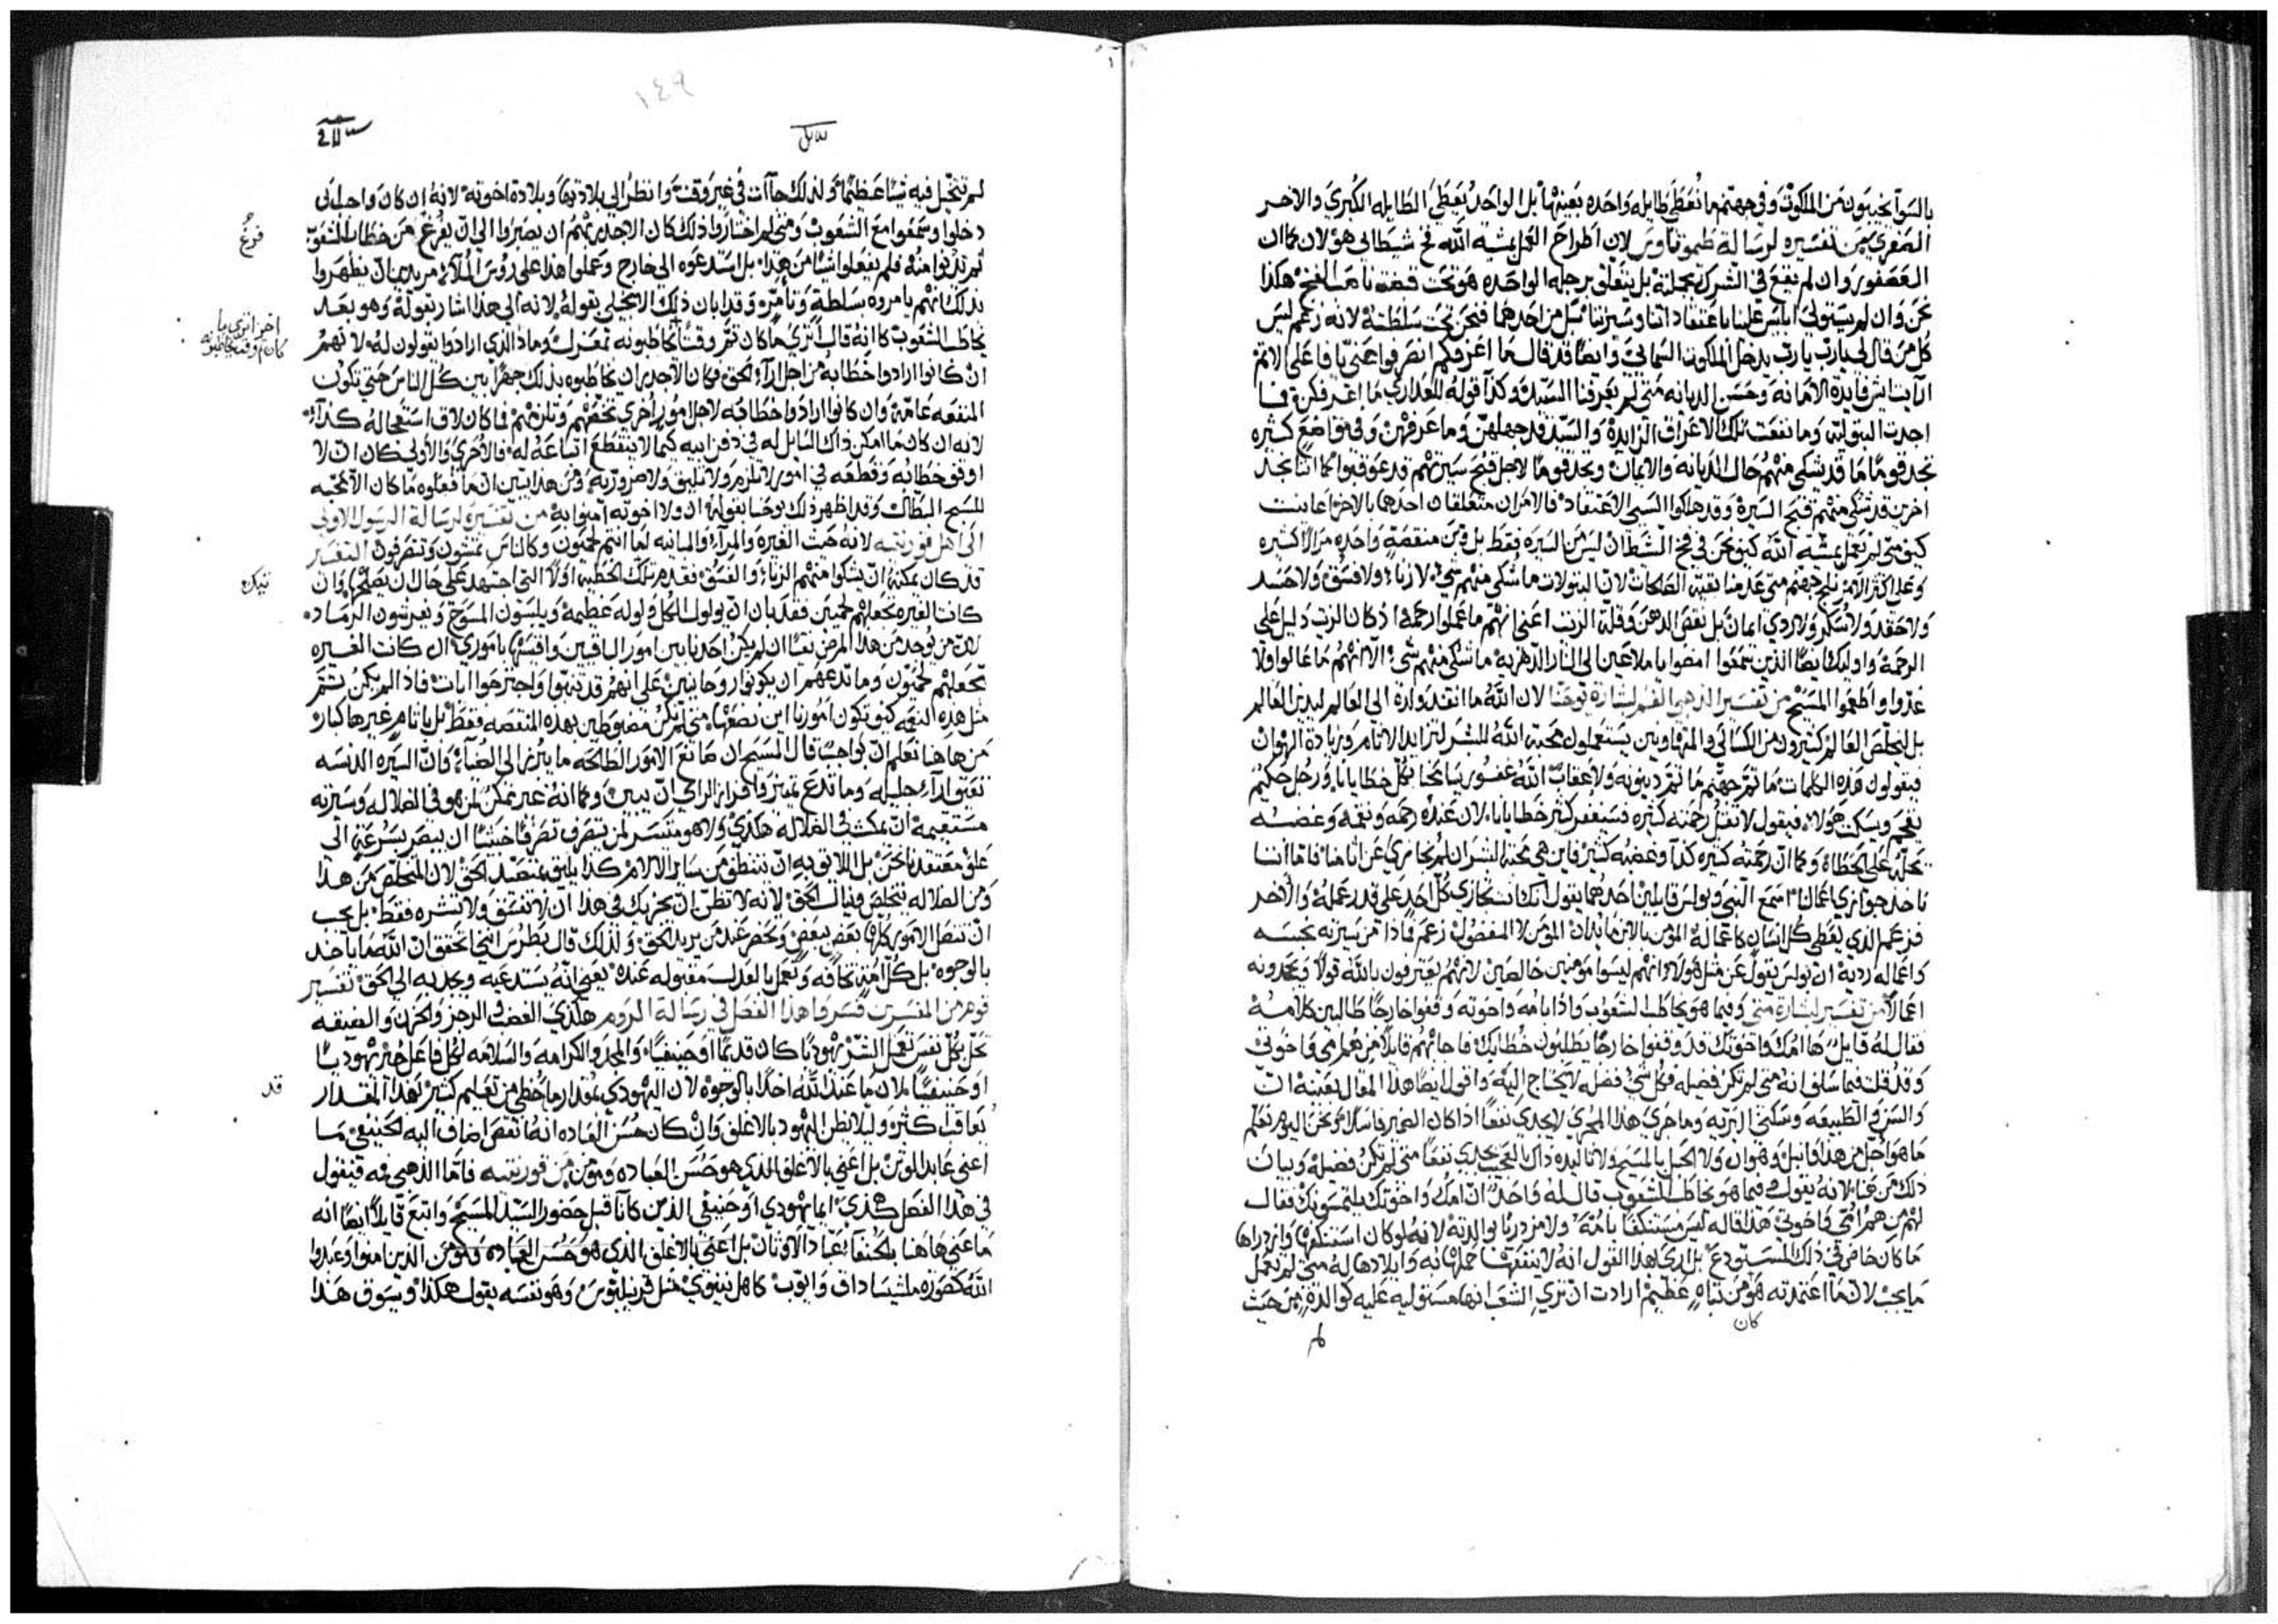 بالسوآ يخيبون من الملكوت وفي جهنم ما تُعطَى طايله واحده بعينها بل الواحد يُعطَى الطايله الكُبرى والاخر
الصغرى من تفسيره لرسالة طيموتاوس لان اطراح العمل بمشية الله فخ شيطاني هولان كما ان
العصفور وان لم يقع في الشرك بجملته بل يتعلق برجله الواحده هو تحت قبضة ناصب الفخ هكذا
نحن وان لم يستولى ابليس علينا باعتقاداتنا وسيرتنا بل من احدهما فنحن تحت سلطته لانه زعم ليس
كل من قال لي يارب يارب يدخل ملكوت السماني وايضًا قد قال ما اعرفكم انصرفوا عني يا فاعلى الاثم
ارايت ايش فايدة الامانه وحسن الديانه متى لم يعرفنا السيد وكذا قوله للعدارى ما اعرفكن فما
اجدت البتوليه وما نفعت تلك الاعراق الزايدة والسيد قد جهلهن وما عرفهن وفي مواضع كثيره
نجد قومًا ما قد يشكى منهم حال الديانه والايمان ونجد قومًا لاجل قبح سيرتهم قد عوقبوا كما اننا نجد
اخرين قد شكى منهم قبح السيرة وقد هلكوا السيى الاعتقاد فالامران متعلقان احدهما بالاخر اعاينت
كيف متى لم نعمل بمشية الله كيف نحن في فخ الشيطان ليس من السيره فقط بل ومن منقصةٍ واحده من الاكثيره
وعلى اكثر الامر نلج جهنم متى عدمنا بقية الصالحات لان البتولات ما شكى منهم شي لا زناء ولا فسق ولا حسد
ولا حقد ولا سكر ولا ردي ايمان بل نقص الدهن وقلة الزيت اعني انهم ما عملوا رحمة اذ كان الزيت دليل على
الرحمة واوليك ايضًا الذين سمعوا امضوا يا ملاعين الى النار الدهريه ما شكى منهم شى الا انهم ما عالوا ولا
غذوا واطعموا المسيح من تفسير الذهبي الفم لبشارة يوحنا لان الله ما انفد ولده الى العالم ليدين العالم
بل ليخلص العالم كثيرون من الكسالى والمتهاونين يستعملون محبة الله للبشر لتزايد الاثام وزيادة التهوان
فيقولون هذه الكلمات ما ثم جهنم ما ثم دينونه ولا عقاب الله غفور يسامحنا بكل خطايانا ورجل حكيم
يفحم ويسكت هولاء فيقول لا تقل رحمته كثيره فسيغفر كثير خطايانا لان عنده رحمه ونقمه وغضبه
يحله على الخطاة وكما ان رحمته كثيره كذا وغضبه كثير فاين هي محبة البشر ان لم يجازي عن اثامنا فاما اننا
ناخذ جوازي اعمالنا اسمع النبي وبولس قايلين احدهما يقول انك انت تجازي كل احد على قدر عمله والاخر
فزعم الذي يعطى كل انسان كاعماله المؤمن بالابن ما يدان المؤمن لا المفضول زعم فاذا من سيرته نجسه
واعماله رديه ان بولس يقول عن مثل هولاء انهم ليسوا مومنين خالصين لانهم يعترفون بالله قولًا ويجحدونه
اعمالًا من تفسير لبشارة متى وفيما هو يخاطب الشعوب واذا بامه واخوته وقفوا خارجًا طالبين كلامه
فقال له قايلٌ ها امك واخوتك قد وقفوا خارجًا يطلبون خطابك فاجابهم قايلًا من هم امى واخوتى
وقد قلت فيما سلف انه متى لم تكن فضيله فكل شي فضله لا يحتاج اليه واقول ايضًا هذا المقال بعينه ان
والسن والطبيعه وسكنى البريه وما جرى هذا المجرى لا يجدى نفعًا اذا كان الضمير فاسدًا ونحن اليوم نعلم
ما هو اجل من هذا قايلًا وهو ان ولا الحبل بالمسيح ولا تاليده ذاك العجيب يجدى نفعًا متى لم تكن فضيله وبيان
ذلك من هنا لانه يقول وفيما هو يخاطب الشعوب قال له واحدٌ ان امك واخوتك يلتمسونك فقال
لهم من هم امي واخوتي هذا قاله ليس مستنكفًا بامه ولا مزدريًا بوالدته لانه لو كان استنكفها وازدراها
ما كان حاضرٌ في ذلك المستودع بل ارى بهذا القول انه لا ينفعها حملها به وايلادها له متى لم تعمل
ما يجب لان ما اعتمدته هو من تباهٍ عظيم ارادت ان تري الشعب انها مستوليه عليه كوالدةٍ من حيث
كان
لم تتخيل فيه شيًا عظيمًا ولذلك جاأت في غير وقت وانظر الي بلادتها وبلادة اخوته لانه ان كان واجب ان
دخلوا وسمعوا مع الشعوب ومتى لم اختاروا ذلك كان الاجدر بهم ان يصبروا الي ان يفرغ من خطاب الشعوب
ثم تدنوا منه فلم يفعلوا شيًا من هذا بل استدعوه الى خارج وعملوا هذا على روس الملاء مريدين ان يظهروا
بذلك انهم يامروه بسلطةٍ وتأمرٍ وقد ابان ذلك الانجيلى بقوله لانه الى هذا اشار بقوله وهو بعد
يخاطب الشعوب كما انه قال اترى ما كان ثم وقتًا تخاطبونه بمعزلٍ وماذا الذي ارادوا يقولون له لانهم
ان كانوا ارادوا خطابه من اجل اراء الحق فكان الاجدر ان يخاطبوه بذلك جهرًا بين كل الناس حتى تكون
المنفعه عامة وان كانوا ارادوا خطابه لاجل امور اخرى تخصهم وتلزمهم فما كان لاق استعجاله كذآء
لانه ان كان ما امكن ذاك السايل له في دفن ابيه كيما لا ينقطع اتباعه له فالاحرى والاولى كان ان لا
اوقف خطابه وقطعه في امور لا تلزم ولا تليق ولا ضروريه ومن هذا يتبين ان ما فعلوه ما كان الا محبه
للسبح البطال وقد اظهر ذلك يوحنا بقوله ان ولا اخوته امنوا به من تفسيره لرسالة الرسول الاولى
الى اهل قورنتيه لانه حيث الغيره والمرآء والمباينه اما انتم لحميون وكالناس تمشون وتتصرفون التفسير
قد كان يمكنه ان يشكوا منهم الزناء والفسق فقدم تلك الخطيه اولًا التى اجتهد على حال ان يصلحها وان
كانت الغيره تجعلهم لحميين فقد بان ان يولول الكل ولوله عظيمه ويلبسون المسوح ويفرشون الرماد
لان من يُوجد من هذا المرض نقيًا ان لم يكن احدنا بين امور الباقين واقيسها بامورى ان كانت الغيره
تجعلهم لحميون وما تدعهم ان يكونوا روحانيين على انهم قد تنبوا واجترحوا ايات فاذا لم يكن ثم
مثل هذه النعمه كيف تكون امورنا اين نضعها متى لم نكن مضبوطين بهذه المنقصه فقط بل باثام غيرها كبار
من هاهنا نعلم ان بواجبٍ قال المسيح ان صانع الامور الطالحه ما يبرز الى الضياء وان السيره الدنسه
تعيق اراء جليله وما تدع تميز وافراز الراي ان يبين وكما انه غير ممكن لمن هو في الضلاله وسيرته
مستقيمه ان يمكث في الضلاله هكذى ولا هو متيسر لمن يتصرف تصرفًا خبيثًا ان يبصر بسرعةٍ الى
علو معتقداتنا نحن بل اللايق به ان ينطق من ساير الالام كذا يليق بمتصيد الحق لان المتخلص من هذا
ومن الضلاله يتخلص وينال الحق لانه لا تظن ان يجزيك في هذا ان لا تفسق ولا تشره فقط بل يجب
ان تتصل الامور كلها بعضٍ ببعض وتحضر عند من يريد الحق ولذلك قال بطرس انني بالحق ان الله ما ياخذ
بالوجوه بل كل امةٍ تخافه وتعمل بالعدل مقبوله عنده يعنى انه يستدعيه ويجذبه الى الحق تفسير
قوم من المفسرين فسروا هذا الفصل في رسالة الروم هكذى الغضب الرجز والحزن والضيقه
تحل بكل نفس تعمل الشر يهوديًا كان قديمًا او حنيفيًا والمجد والكرامه والسلامه لكل فاعل خير يهوديًا
او حنيفيًا لان ما عند الله اخذًا بالوجوه لان اليهودي بمقدار ما حُظي من تعليم كثير بهذا المقدار
يعاقب كثير وليلا يظن اليهود بالاغلق وان كان حسن العباده انه نقص اضاف اليه الحنيفي ما
اعني عابد الوثن بل اعني بالاغلق الذي هو حسن العباده ومومن من قورنتيه فاما الذهبي فمه فيقول
في هذا الفصل هكذى ايما يهودي او حنيفي الذين كانا قبل حضور السيد المسيح واتبع قايلًا ايضًا انه
ما عنى هاهنا بالحنفاء عباد الاوثان بل اعني بالاغلق الذي هو حسن العباده ومومن الذين امنوا وعبدوا
الله كصورة ملشيساداق وايوب كاهل نينوى مثل قرنيليوس وهو نفسه يقول هكذا ويسوق هذا
فرغُ
اخر اترى ما
كان ثم وقت يخاطبونه
تمكن
قد
١٤٩